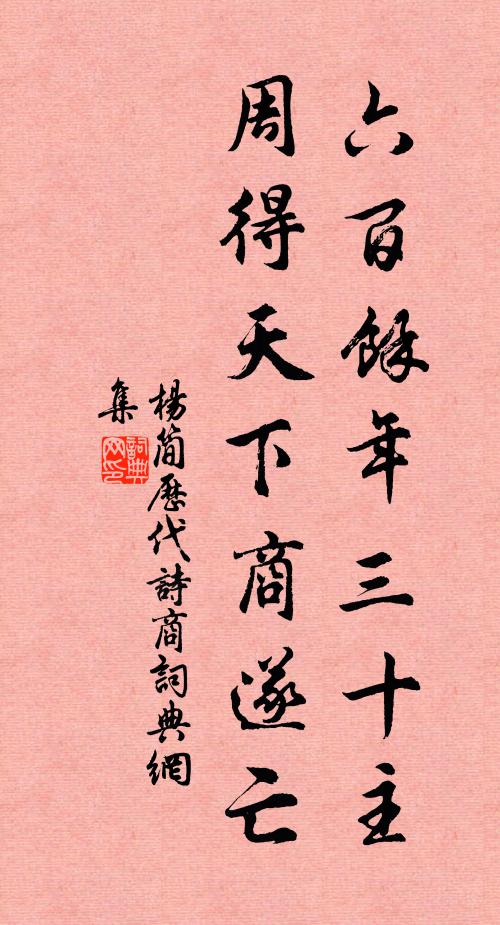 六百餘年三十主
周得天下商遂亡
楊简歷代詩商詞典網
集
詞典
网印